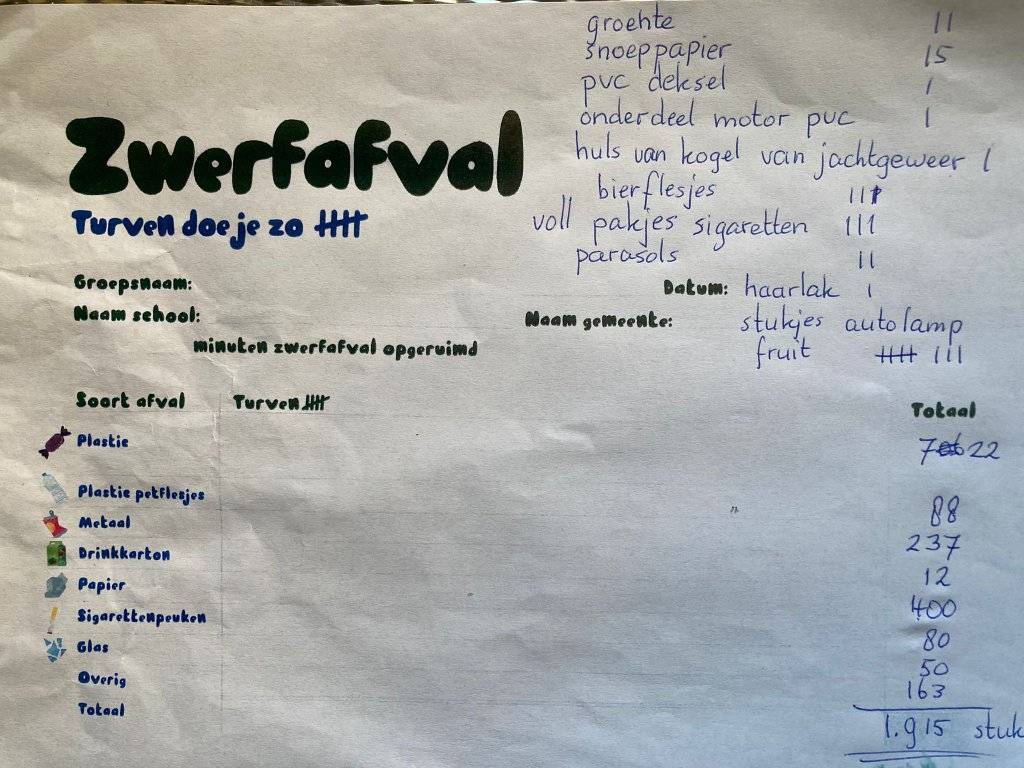 groehte 11
snoeppapier 15
pvc deksel 1
onderdeel motor pvc 1
huls van kogel van jachtgeweer 1
bierflesjes III
voll pakjes sigaretten III
parasols II
Zwerfafval
Turven doe je zo IIII
Groepsnaam:
Datum: haarlak I
Naam school:
Naam gemeente: stukjes autolamp
minuten zwerfafval opgeruimd
fruit IIII III
Soort afval Turven IIII Totaal
Plastic 722
Plastic petflesjes 88
Metaal 237
Drinkkarton 12
Papier 400
Sigarettenpeuken 80
Glas 50
Overig 163
Totaal 1.915 stuk